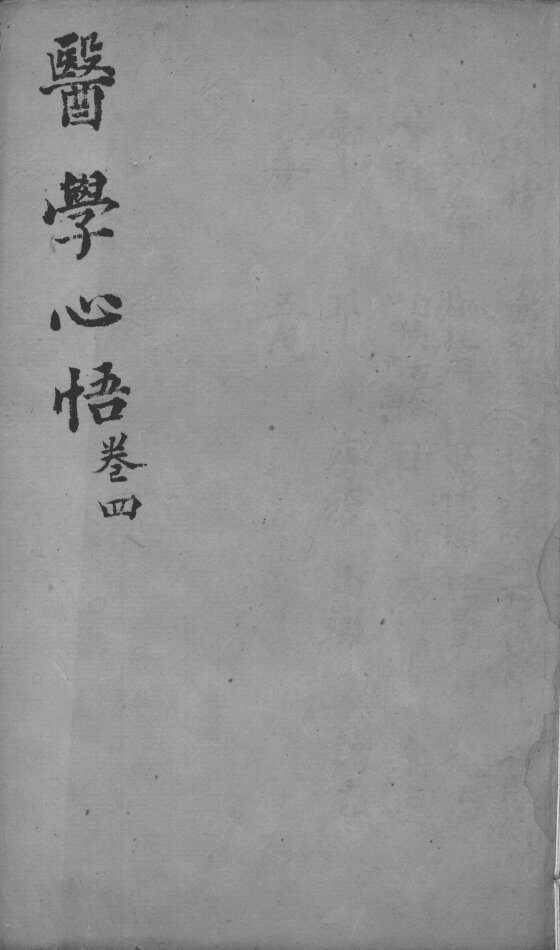 醫學心悟
卷四